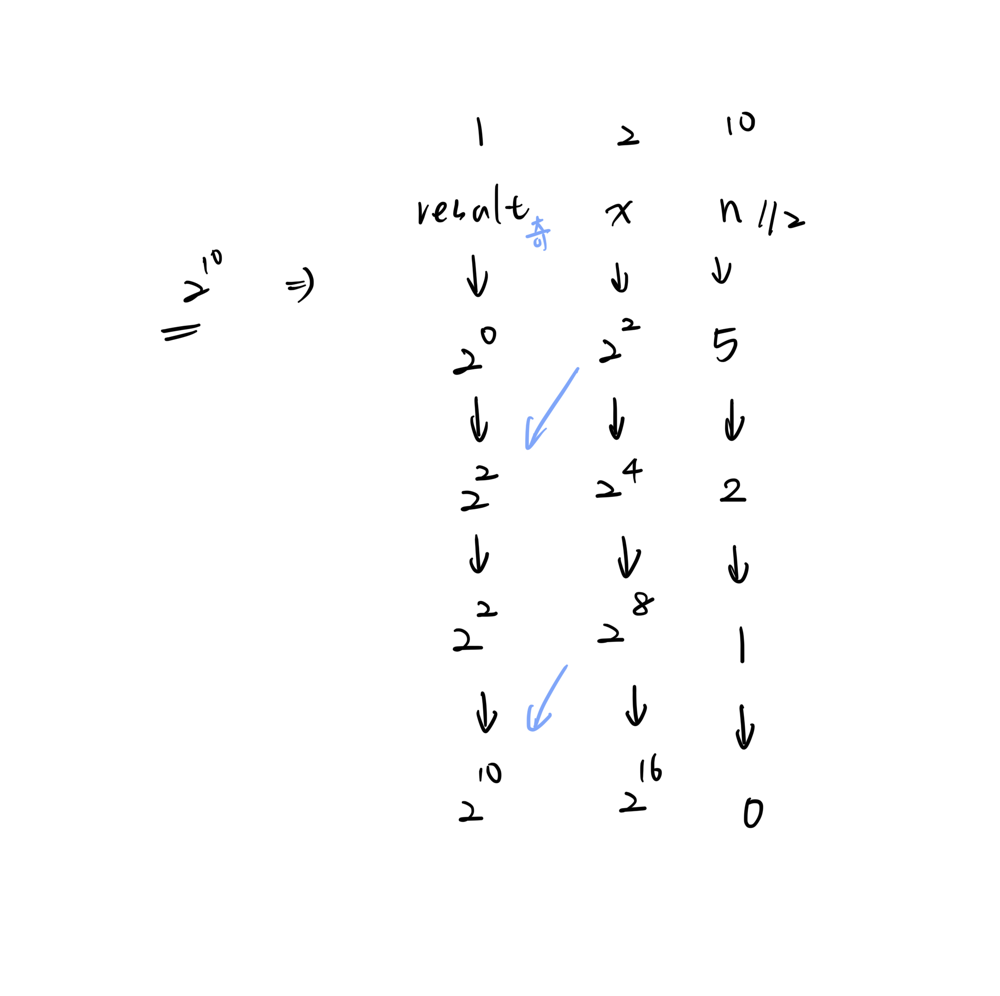 1 2 10
resalt 奇 x n//2
↓ ↓ ↓
2¹⁰ ⇒
2⁰ 2² 5
↓ ↓ ↓
2² 2⁴ 2
↓ ↓ ↓
2² 2⁸ 1
↓ ↓ ↓
2¹⁰ 2¹⁶ 0